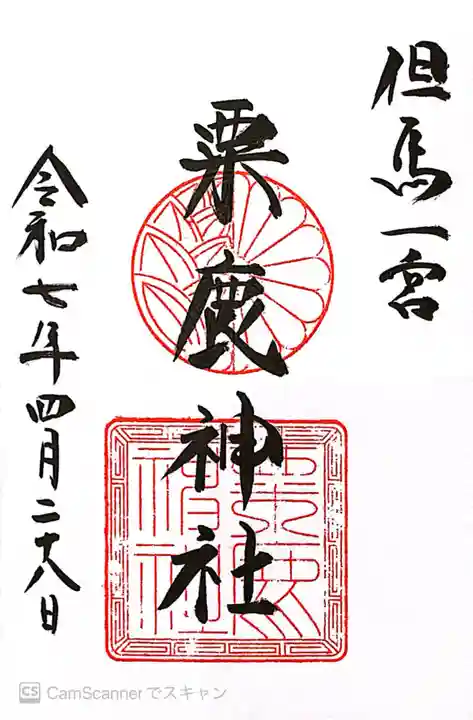 但馬一宮
粟鹿神社
令和七年四月二十八日
粟鹿
神社
CS CamScannerでスキャン